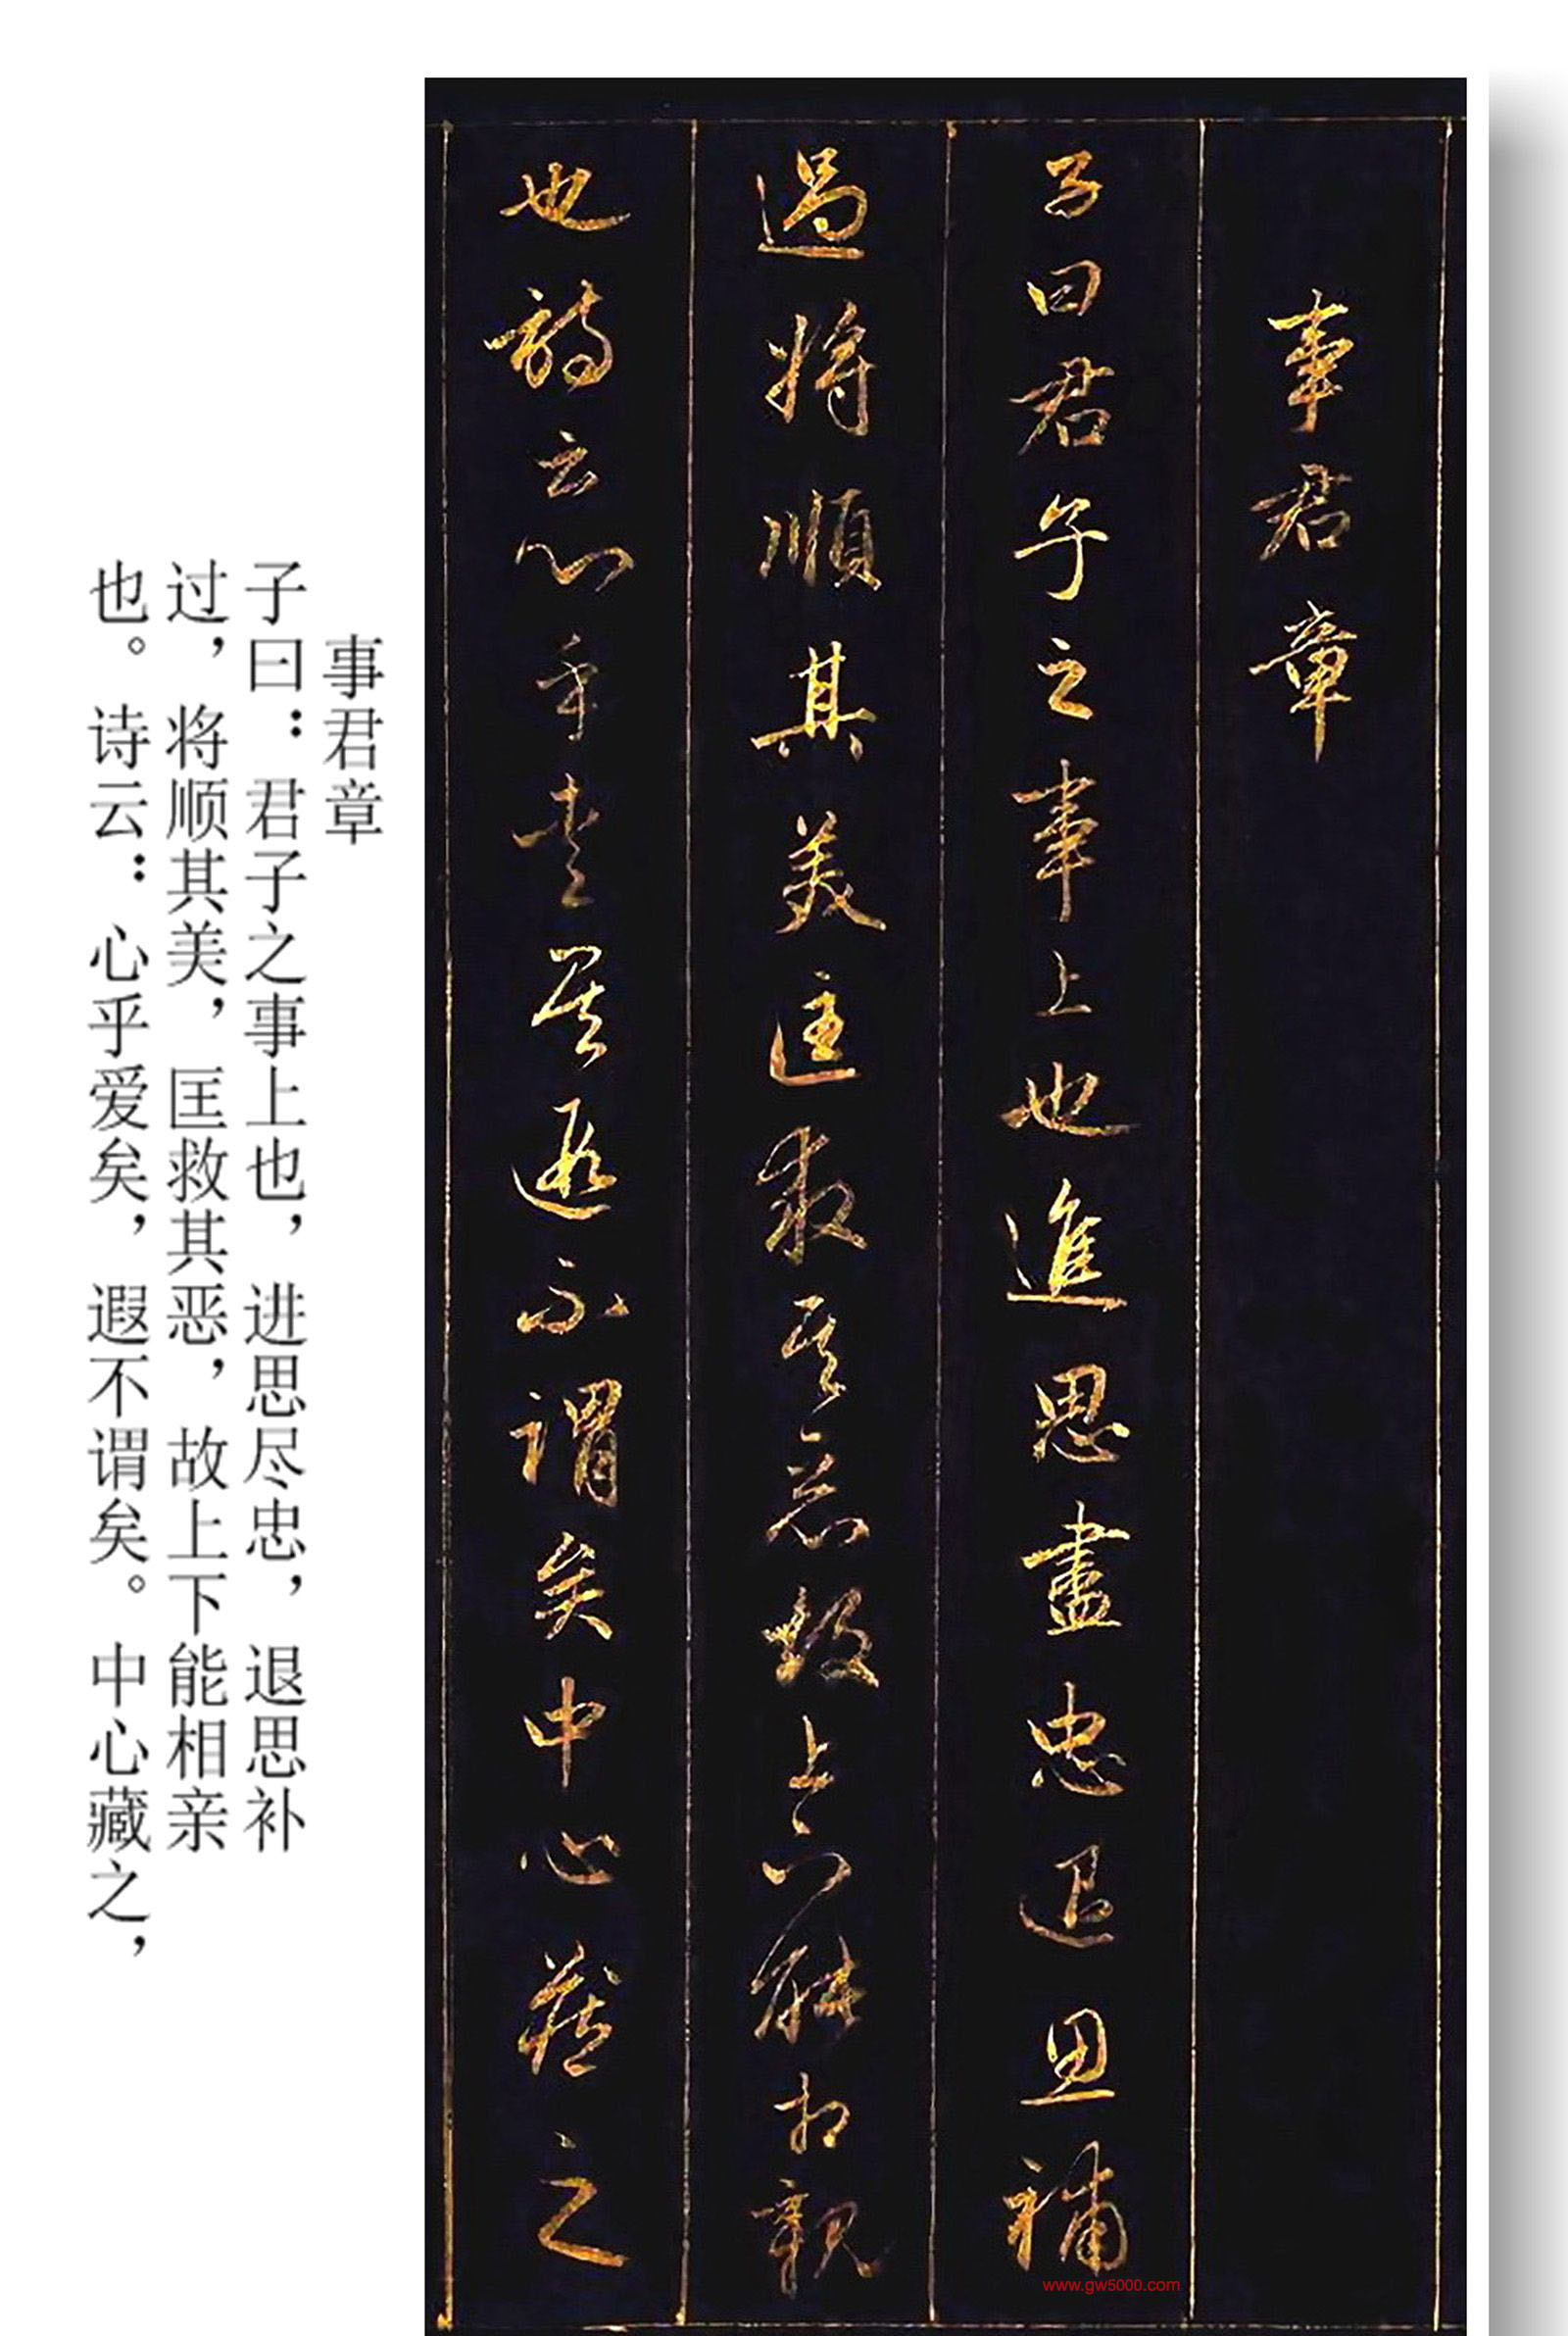 事君章
子曰君子之事上也進思盡忠退思補
過將順其美匡救其惡故上下能相親
也詩云心乎愛矣遐不謂矣中心藏之
www.gw5000.com
事君章
子曰：君子之事上也，进思尽忠，退思补
过，将顺其美，匡救其恶，故上下能相亲
也。诗云：心乎爱矣，遐不谓矣。中心藏之，